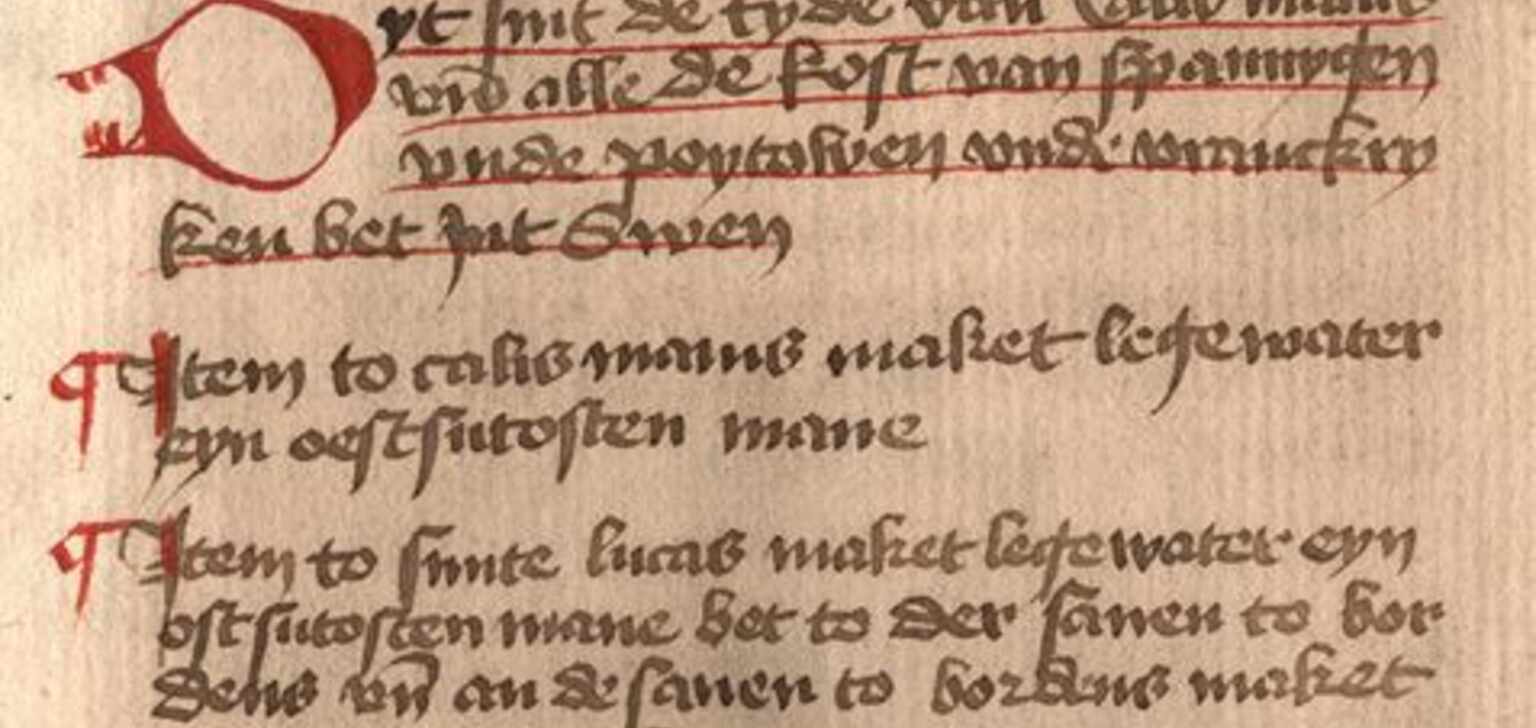 Dyt sint de tyde van Calis maius
vnd alle de kost van spannygen
vnde poytowen vnde vranckry
ken bet int Swen
Item to calis maius maket legewater
eyn oestsutosten mane
Item to sunte lucas maket legewater eyn
ostsutosten mane bet to der sanen to bor
deus vn̄ an de sanen to bordeus maket